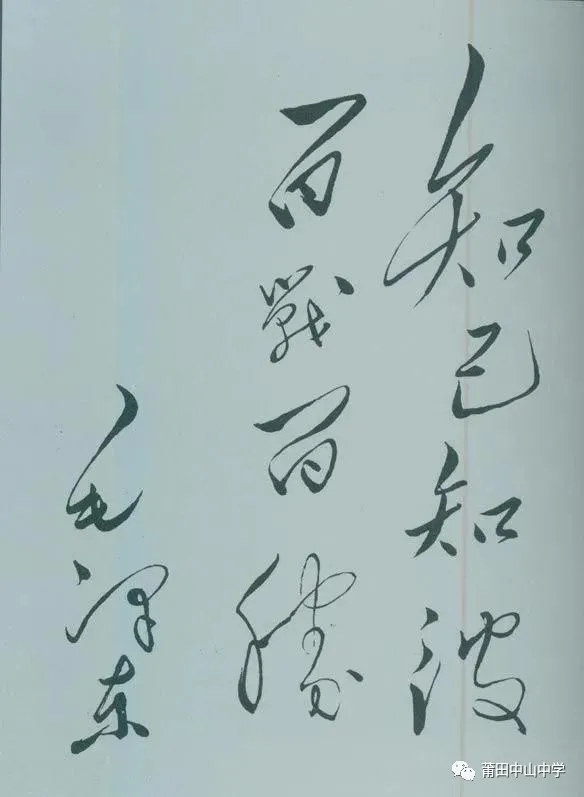 知己知彼
百戰百勝
毛泽东
莆田中山中学